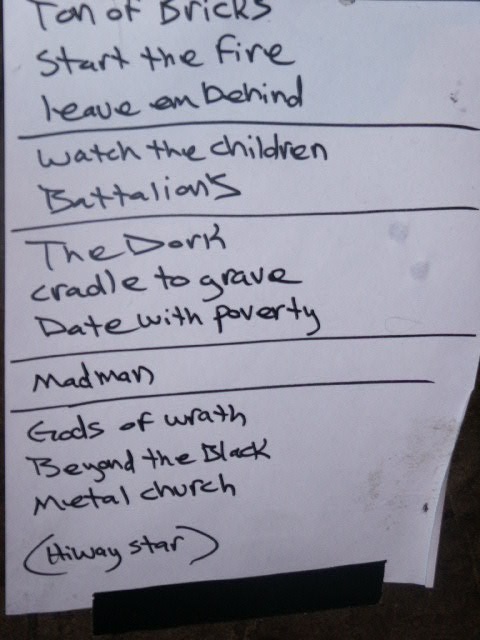 Ton of Bricks
Start the fire
leave em behind
watch the children
Battalions
The Dork
cradle to grave
Date with poverty
Madman
Gods of wrath
Beyond the Black
Metal church
(Hiway star)